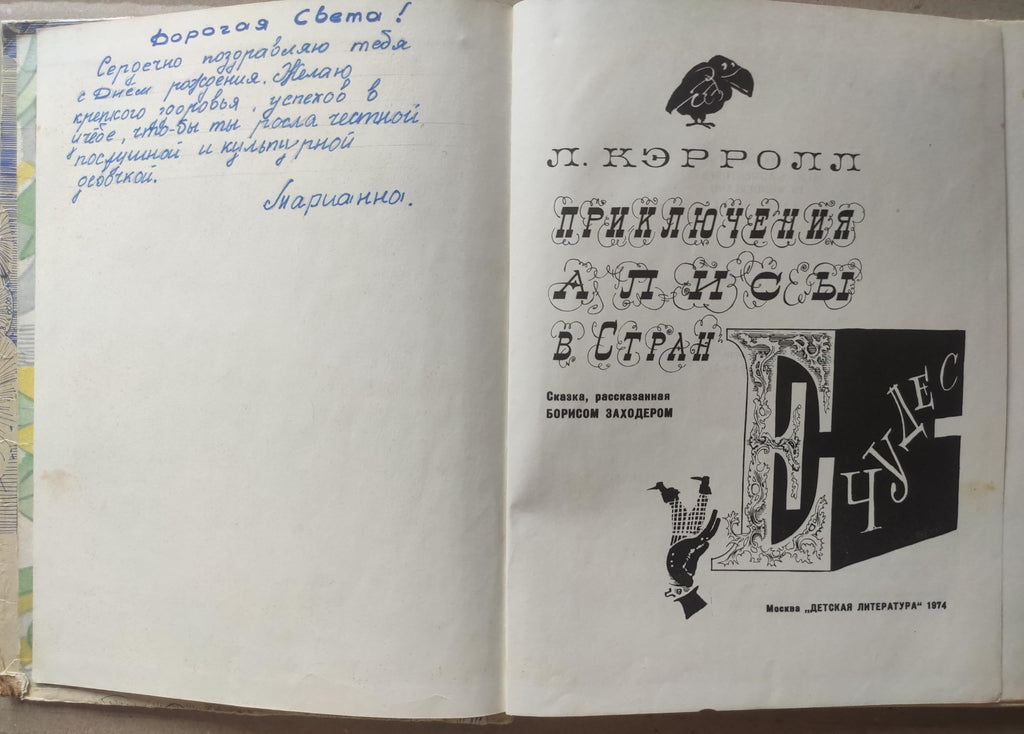 Дорогая Света!
Сердечно поздравляю тебя
с Днём рождения. Желаю
крепкого здоровья, успехов в
учёбе, что-бы ты росла честной,
послушной и культурной
особчкой.
Марианна.
Л. КЭРРОЛЛ
ПРИКЛЮЧЕНИЯ
АЛИСЫ
В СТРАНЕ
ЧУДЕС
Сказка, рассказанная
БОРИСОМ ЗАХОДЕРОМ
Москва „ДЕТСКАЯ ЛИТЕРАТУРА" 1974